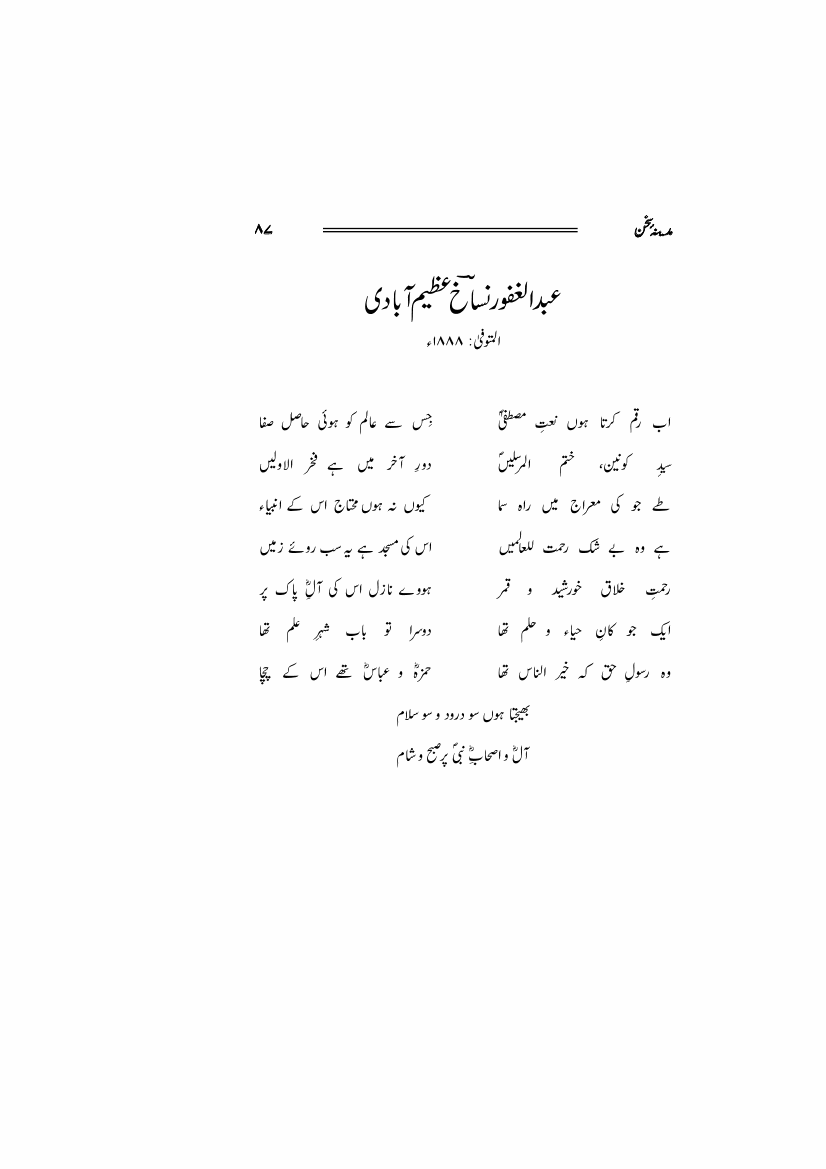 مدینہ سخن ۸۷
عبدالغفور نساخؔ عظیم آبادی
المتوفیٰ: ۱۸۸۸ء
اب رقم کرتا ہوں نعتِ مصطفیٰؐ جِس سے عالم کو ہوئی حاصل صفا
سیدِ کونین، ختم المرسلیںؐ دورِ آخر میں ہے فخر الاولیں
طے جو کی معراج میں راہ سما کیوں نہ ہوں محتاج اس کے انبیاء
ہے وہ بے شک رحمت للعالمیں اس کی مسجد ہے یہ سب روئے زمیں
رحمتِ خلاق خورشید و قمر ہووے نازل اس کی آلِؓ پاک پر
ایک جو کانِ حیاء و حلم تھا دوسرا تو باب شہرِ علم تھا
وہ رسولِ حق کہ خیر الناس تھا حمزہؓ و عباسؓ تھے اس کے چچا
بھیجتا ہوں سو درود و سو سلام
آلؓ و اصحابِؓ نبیؐ پر صبح و شام